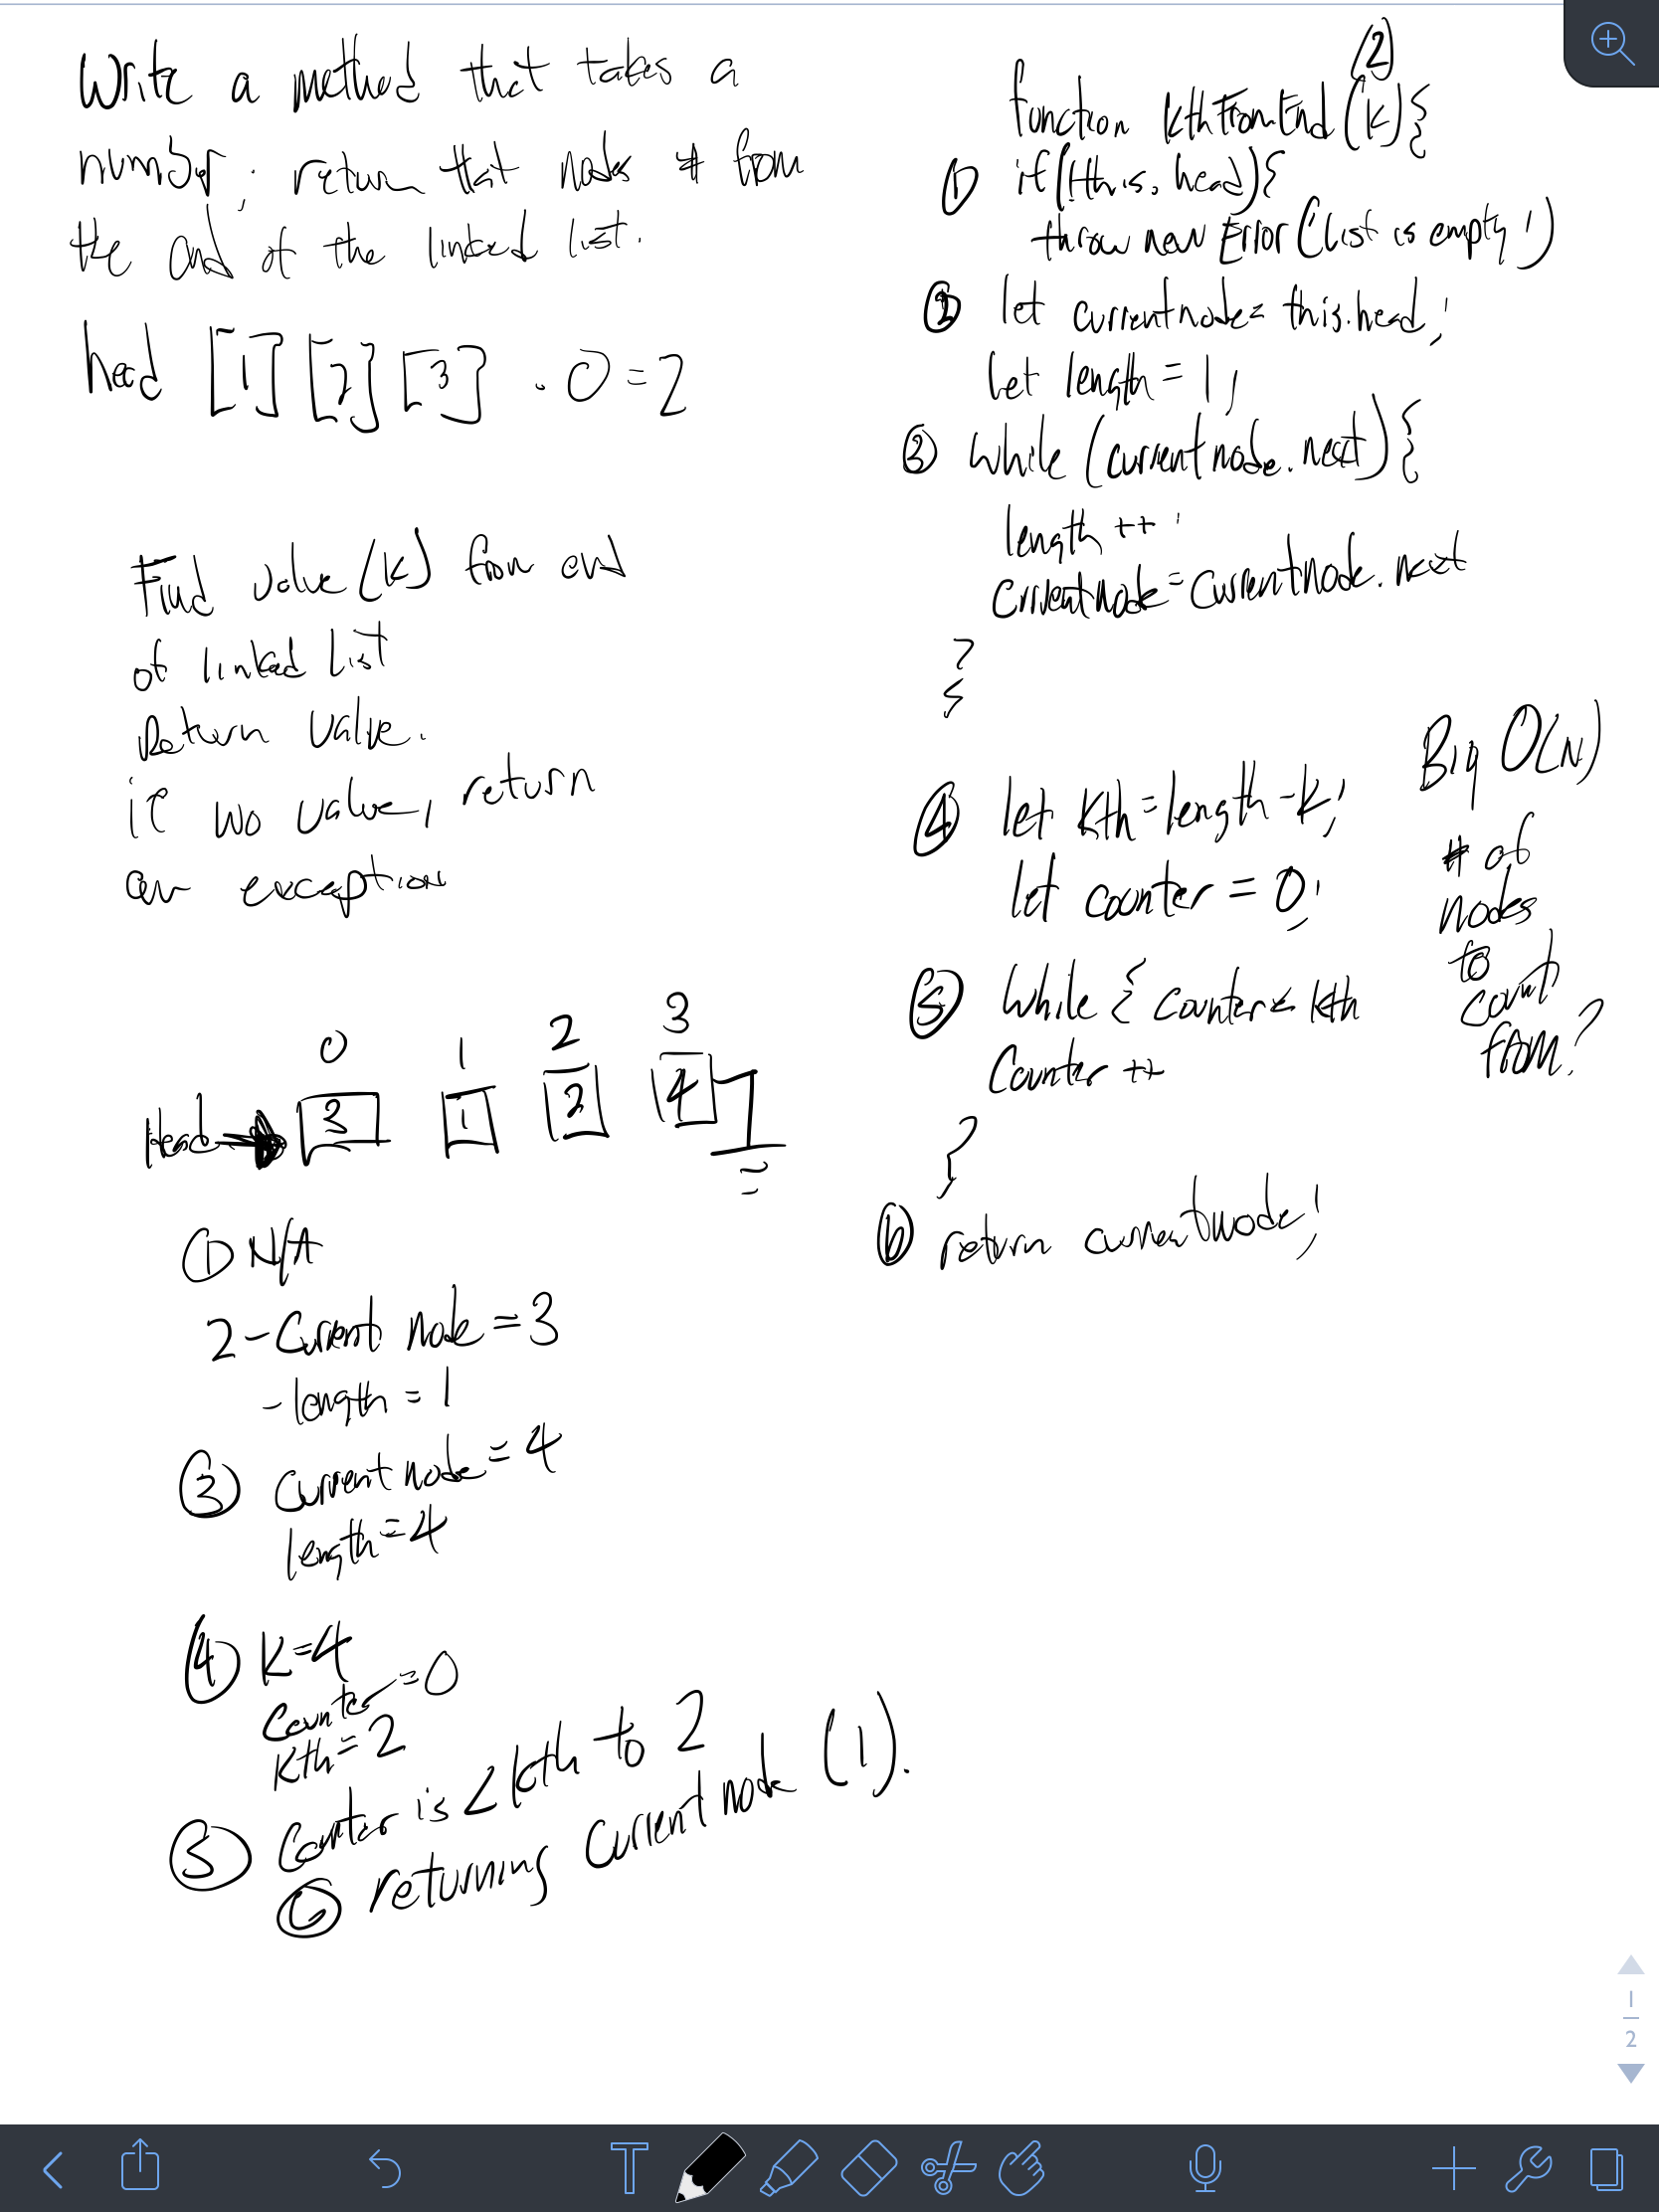 Write a method that takes a
number; return that nodes # from
the end of the linked list.
head [1] [2] [3] . 0 = 2
Find value (k) from end
of linked list
Return value.
if no value, return
an exception
0 1 2 3
Head → 3 1 2 4
① N/A
2 - Current node = 3
- length = 1
③ Current node = 4
length = 4
④ K = 4
Counter = 0
Kth = 2
⑤ Counter is < kth to 2
⑥ returning Current node (1).
(2)
function kthFromEnd (k) {
① if (!this.head) {
throw new Error ('list is empty')
② let currentnode = this.head;
let length = 1;
③ while (currentnode.next) {
length ++;
currentnode = currentnode.next
}
④ let kth = length - k;
let counter = 0;
⑤ while { counter < kth
Counter ++
}
⑥ return currentnode;
Big O(N)
# of
nodes
to
count
from?
1
2
T